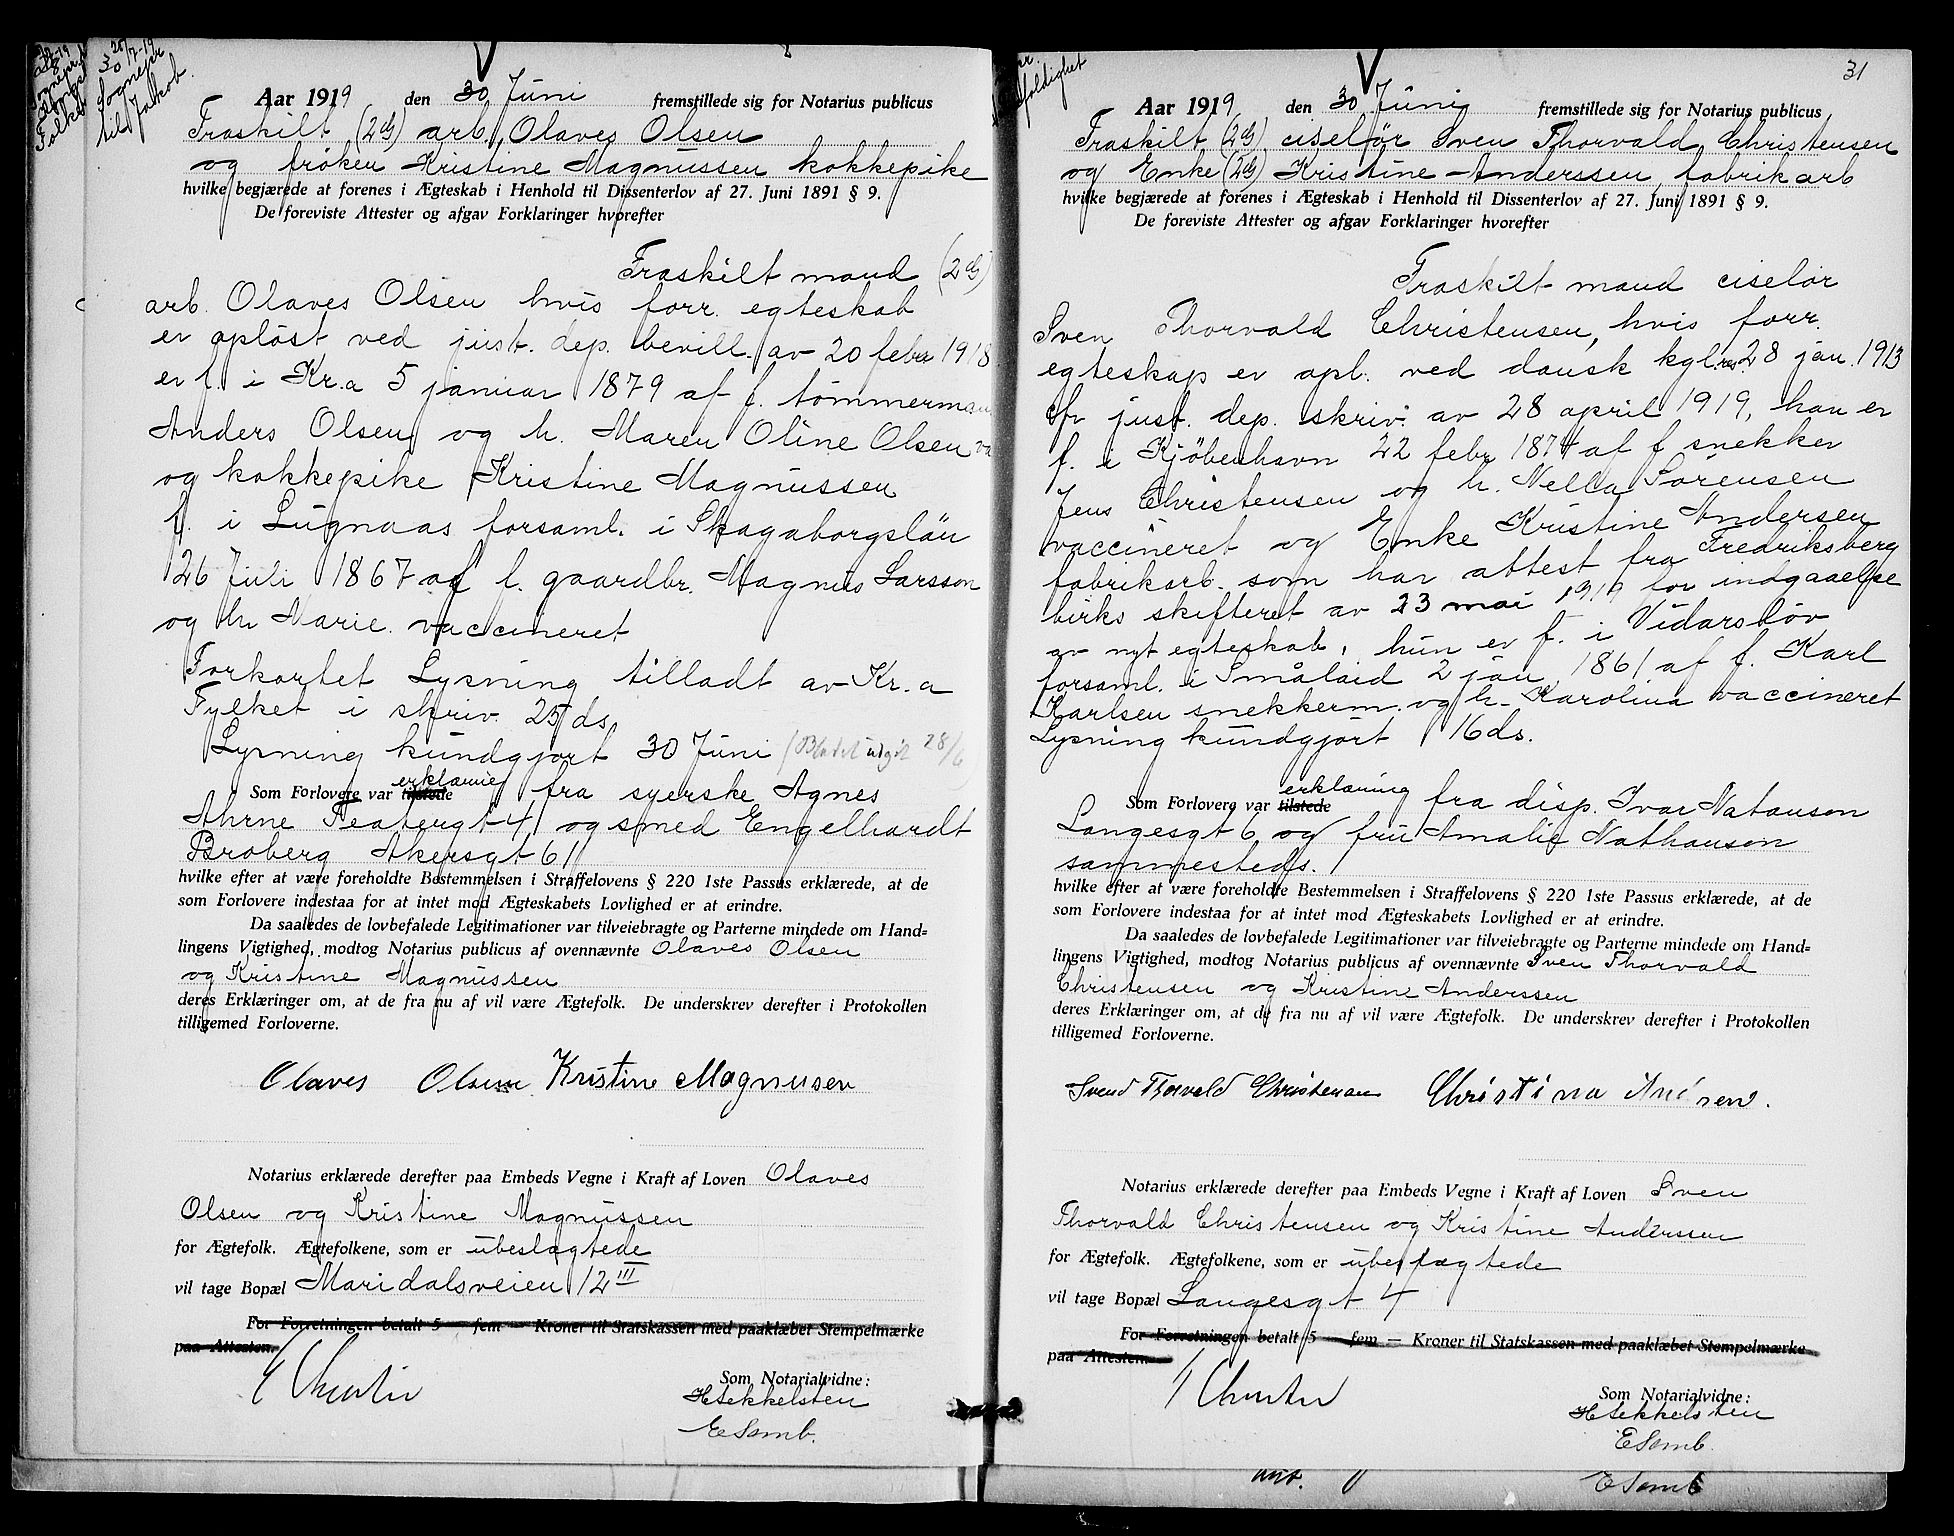 20/7-19
30 Sognepr
til Jakob.
Aar 1919 den 30 Juni fremstillede sig for Notarius publicus
Fraskilt (2 eg) arb. Olaves Olsen
og frøken Kristine Magnussen kokkepike
hvilke begjærede at forenes i Ægteskab i Henhold til Dissenterlov af 27. Juni 1891 § 9.
De foreviste Attester og afgav Forklaringer hvorefter
Fraskilt mand (2 eg)
arb. Olaves Olsen hvis forr. egteskab
er opløst ved just. dep. bevill. av 20 febr 1918
er f. i Kr.a 5 januar 1879 af f. tømmermand
Anders Olsen og h. Maren Oline Olsen va
og kokkepike Kristine Magnussen
f. i Lugnaas forsaml. i Skagaborgslän
26 Juli 1867 af f. gaardbr. Magnus Larsson
og h Marie. vaccineret
Forkortet Lysning tilladt av Kr.a
Fylket i skriv. 25 ds.
Lysning kundgjort 30 Juni (Bladet utgit 28/6)
Som Forlovere var tilstede erklæring fra syerske Agnes
Ahrne Teatergt 4 og smed Engelhardt
Broberg Akersgt 61
hvilke efter at være foreholdte Bestemmelsen i Straffelovens § 220 1ste Passus erklærede, at de
som Forlovere indestaa for at intet mod Ægteskabets Lovlighed er at erindre.
Da saaledes de lovbefalede Legitimationer var tilveiebragte og Parterne mindede om Hand=
lingens Vigtighed, modtog Notarius publicus af ovennævnte Olaves Olsen
og Kristine Magnussen
deres Erklæringer om, at de fra nu af vil være Ægtefolk. De underskrev derefter i Protokollen
tilligemed Forloverne.
Olaves Olsen Kristine Magnusen
Notarius erklærede derefter paa Embeds Vegne i Kraft af Loven Olaves
Olsen og Kristine Magnussen
for Ægtefolk. Ægtefolkene, som er ubeslægtede
vil tage Bopæl Maridalsveien 12 III
For Forretningen betalt 5 — fem — Kroner til Statskassen med paaklæbet Stempelmærke
paa Attesten.
Som Notarialvidne:
HSekkelsten
ESomb.
31
Aar 1919 den 30 Juni fremstillede sig for Notarius publicus
Fraskilt (2 eg) ciselør Sven Thorvald Christensen
og Enke (2 eg) Kristine Anderssen, fabrikarb
hvilke begjærede at forenes i Ægteskab i Henhold til Dissenterlov af 27. Juni 1891 § 9.
De foreviste Attester og afgav Forklaringer hvorefter
Fraskilt mand ciselør
Sven Thorvald Christensen, hvis forr.
egteskap er opl. ved dansk kgl. res. 28 jan. 1913
cfr just. dep. skriv. av 28 april 1919, han er
f. i Kjöbenhavn 22 febr 1874 af f snekker
Jens Christensen og h. Nella Sörensen
vaccineret og Enke Kristine Andersen
fabrikarb. som har attest fra Fredriksberg
birks skifteret av 23 mai 1919 for indgaaelse
av nyt egteskab, hun er f. i Vidarslöv
forsaml. i Småland 2 jan 1861 af f. Karl
Karlsen snekkerm. og h. Karolina vaccineret
Lysning kundgjort 16 ds.
Som Forlovere var tilstede erklæring fra disp. Ivar Natanson
Langesgt 6 og fru Amalie Nathanson
sammesteds.
hvilke efter at være foreholdte Bestemmelsen i Straffelovens § 220 1ste Passus erklærede, at de
som Forlovere indestaa for at intet mod Ægteskabets Lovlighed er at erindre.
Da saaledes de lovbefalede Legitimationer var tilveiebragte og Parterne mindede om Hand=
lingens Vigtighed, modtog Notarius publicus af ovennævnte Sven Thorvald
Christensen og Kristine Anderssen
deres Erklæringer om, at de fra nu af vil være Ægtefolk. De underskrev derefter i Protokollen
tilligemed Forloverne.
Svend Thorvald Christensen Christina Andsen.
Notarius erklærede derefter paa Embeds Vegne i Kraft af Loven Sven
Thorvald Christensen og Kristine Anderssen
for Ægtefolk. Ægtefolkene, som er ubeslægtede
vil tage Bopæl Langesgt 4
For Forretningen betalt 5 — fem — Kroner til Statskassen med paaklæbet Stempelmærke
paa Attesten.
Som Notarialvidne:
HSekkelsten
ESomb.
ESomb